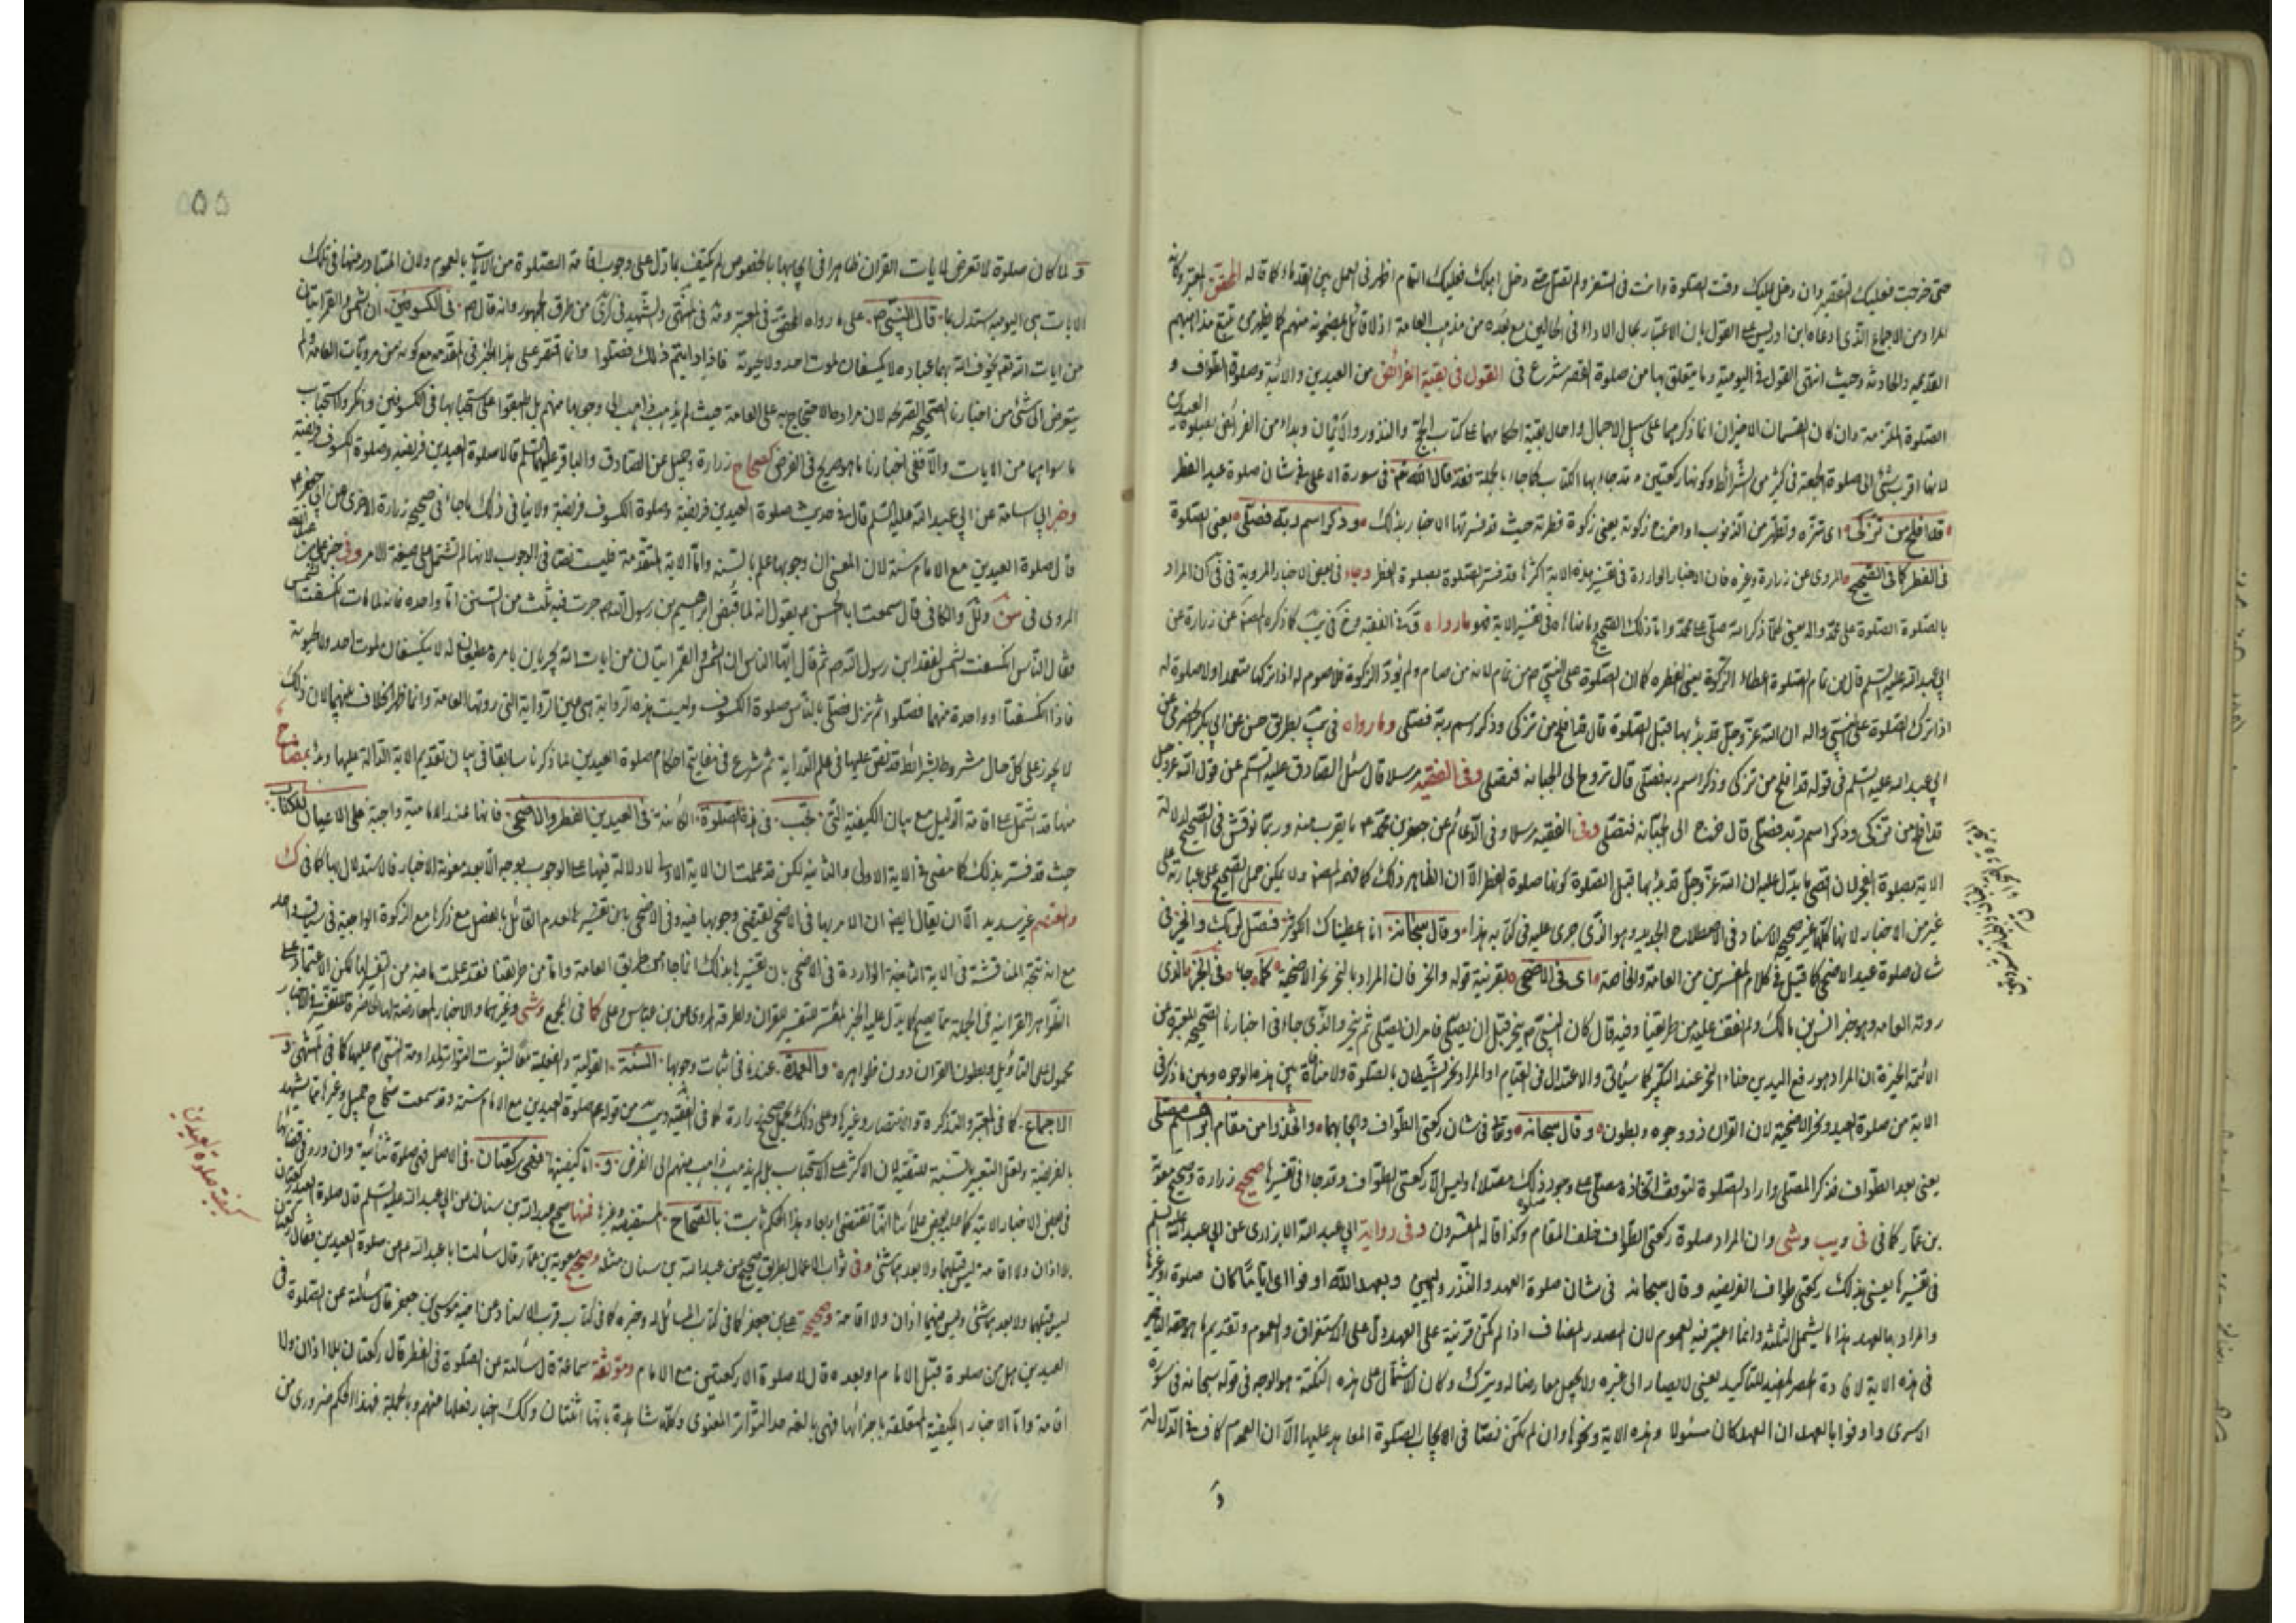 حتى خرجت فعليك التقصير وان دخل عليك وقت الصلوة وانت فى السفر ولم تصل حتى دخل اهلك فعليك التمام اظهر فى العمل بين القدماء كما قاله المحقق
المراد من الاجماع الذى ادعاه ابن ادريس على القول بان الاعتبار بحال الاداء فى الحالين مع بعده من مذهب العامة اذ لا قائل بمضمونه منهم كما يظهر من تتبع مذاهبهم
القديمة والحادثة وحيث انتهى القول فى اليومية وما يتعلق بها من صلوة القصر شرع فى القول فى بقية الفرائض من العيدين والآئية وصلوة الطواف و
الصلوة الملتزمة وان كان القسمان الاخيران انما ذكرهما على سبيل الاجمال واحال بقية احكامهما على كتاب الحج والنذور والأيمان وبداء من الفرائض بصلوة العيدين
لانها اقرب شئ الى صلوة الجمعة فى كثير من الشرائط وكونها ركعتين وقد جاء بها الكتاب كما جاء بالجملة فقد قال الله تعالى فى سورة الاعلى فى شان صلوة عيد الفطر
قد افلح من تزكى اى تنزه وتطهر من الذنوب او اخرج زكوته يعنى زكوة فطرته حيث قد فسرتها الاخبار بذلك وذكر اسم ربه فصلى يعنى الصلوة
فى الفطر كما فى الصحيح المروى عن زرارة وغيره فان الاخبار الواردة فى تفسير هذه الاية اكثرها قد فسر الصلوة بصلوة الفطر وجاء فى بعض الاخبار المروية فى فى كان المراد
بالصلوة الصلوة على محمد واله يعنى كلما ذكر الله صلى على محمد واما ذلك الصحيح وما ضاهاه فى تفسير الاية فهو ما رواه فى الفقيه كما ذكره المصنف عن زرارة عن
ابى عبد الله عليه السلم قال من تمام الصلوة اعطاء الزكوة يعنى الفطره كما ان الصلوة على النبى ص من تمام لانه من صام ولم يؤد الزكوة فلا صوم له اذا تركها متعمدا ولا صلوة له
اذا ترك الصلوة على النبى واله ان الله عز وجل قد بدء بها قبل الصلوة قال قد افلح من تزكى وذكر اسم ربه فصلى وما رواه فى يب بطريق حسن عن ابى بكر الحضرمى عن
ابى عبد الله عليه السلم فى قوله قد افلح من تزكى وذكر اسم ربه فصلى قال تروح الى الجبانة فتصلى وفى الفقيه مرسلا قال سئل الصادق عليه السلم عن قول الله عز وجل
قد افلح من تزكى وذكر اسم ربه فصلى قال خرج الى الجبانة فتصلى وفى الفقيه مرسلا وفى الدعائم عن جعفر بن محمد ع ما يقرب منه وربما نوقش فى الصحيح لدلالة
الاية بصلوة الفجر لان اقصى ما يدل عليه ان الله عز وجل قد بدء بها قبل الصلوة كونها صلوة الفطر الا ان الظاهر ذلك كما فهمه المصنف ولا يمكن حمل الصحيح على عبارته على
غيره من الاخبار لانها كلها غير صحيح الاسناد فى الاصطلاح الجديد وهو الذى جرى عليه فى كتابه هذا وقال سبحانه انا اعطيناك الكوثر فصل لربك وانحر فى
شان صلوة عيد الاضحى كما قيل فى كلام المفسرين من العامة والخاصة اى فى الاضحى بقرينة قوله وانحر فان المراد بالنحر نحر الاضحية كما جاء فى الخبر الذى
روته العامه وهو خبر انس بن مالك ولم نقف عليه من طريقنا وفيه قال كان النبى ص ينحر قبل ان يصلى فامر ان يصلى ثم ينحر والذى جاء فى اخبارنا الصحيحه المعتبرة عن
الائمة الخيرة ان المراد هو رفع اليدين حذاء النحر عند التكبير كما سيأتى والاعتدال فى القيام او المراد نحر الشيطان بالصلوة ولا منافاة بين هذه الوجوه وبين ما ذكر فى
الاية من صلوة العيد ونحر الاضحية لان القران ذو وجوه وبطون وقال سبحانه وتعالى فى شان ركعتى الطواف وايجابهما واتخذوا من مقام ابراهيم مصلى
يعنى بعد الطواف فذكر المصلى واراد الصلوة لتوقف اتخاذه مصلى على وجود ذلك مصلا وليس الا ركعتى الطواف وقد جاء فى تفسيرها صحيح زرارة وصحيح معوية
بن عمار كما فى فى ويب وشى وان المراد صلوة ركعتى الطواف خلف المقام وكذا قاله المفسرون وفى رواية ابى عبد الله الابزارى عن ابى عبد الله عليه السلم
فى تفسيرها يعنى بذلك ركعتى طواف الفريضه وقال سبحانه فى شان صلوة العهد والنذر واليمين وبعهد الله اوفوا اى ايا ما كان صلوة او غيرها
والمراد بالعهد هذا ما يشمل الثلثه وانما اعتبر فيه العموم لان المصدر المضاف اذا لم تكن قرينة على العهد دل على الاستغراق والعموم وتقديم ما هو حقه التاخير
فى هذه الاية لافادة الحصر المفيد للتاكيد يعنى لا يصار الى غيره ولا يجعل معارضا له ويترك وكان الاشتمال على هذه النكتة هو الوجه فى قوله سبحانه فى سورة
الاسرى واوفوا بالعهد ان العهد كان مسئولا وهذه الاية ونحوها وان لم تكن نصا فى ايجاب الصلوة المعاهد عليها الا ان العموم كاف فى الدلالة
و
٥٥
ولما كان صلوة لا تعرض لآيات القران ظاهرا فى ايجابها بالخصوص لم يكتف بما دل على وجوب اقامة الصلوة من الآيات بالعموم ولان المتبادر منها فى تلك
الايات هى اليومية استدل بما قال النبى ص على ما رواه المحقق فى المعتبر ومة فى المنتهى والشهيد فى كرى من طرق الجمهور وانه قال ص فى الكسوفين ان الشمس والقمر ايتان
من ايات الله تعم يخوف الله بهما عباده لا يكسفان لموت احد ولا لحيوته فاذا رايتم ذلك فصلوا وانما اقتصر على هذا الخبر فى المقدمه مع كونه من مرويات العامة ولم
يتعرض الى شئ من اخبارنا الصحيحه الصريحه لان مراده الاحتجاج به على العامة حيث لم يذهب ذاهب الى وجوبها منهم بل اطبقوا على استحبابها فى الكسوفين وانكروا استحباب
ما سواهما من الايات والا ففى اخبارنا ما هو صريح فى الفرض كصحاح زرارة وجميل عن الصادق والباقر عليهما السلم قالا صلوة العيدين فريضه وصلوة الكسوف فريضة
وخبر ابى اسامة عن ابى عبد الله عليه السلم قال فى حديث صلوة العيدين فريضة وصلوة الكسوف فريضة ولا ينافى ذلك ما جاء فى صحيح زرارة الاخرى عن ابى جعفر ع
قال صلوة العيدين مع الامام سنة لان المعنى ان وجوبها علم بالسنه واما الاية المتقدمة فليست نصا فى الوجوب لانها لم تشتمل على صيغة الامر وفى خبر على بن عبد الله
المروى فى سن ولل والكافى قال سمعت ابا الحسن ع يقول انه لما قبض ابراهيم بن رسول الله ص جرت فيه ثلث من السنن اما واحده فانه لما مات انكسفت الشمس
فقال الناس انكسفت الشمس لفقد ابن رسول الله ص ثم قال ايها الناس ان الشمس والقمر ايتان من ايات الله يجريان بامره مطيعان له لا ينكسفان لموت احد ولا لحيوته
فاذا انكسفتا او واحدة منهما فصلوا ثم نزل فصلى بالناس صلوة الكسوف وليست هذه الرواية هى عين الرواية التى روتها العامة وانما ظهر الخلاف بينهما لان ذلك
لا يجوز على كل حال مشروط بشرائط قد نص عليها فى علم الدراية ثم شرع فى مفاتيح احكام صلوة العيدين لما ذكرنا سابقا فى بيان تقديم الاية الدالة عليها وبدء بمفتاح
منها قد اشتمل على اقامة الدليل مع بيان الكيفية التى تجب فى هذه الصلوة الكائنة فى العيدين الفطر والاضحى فانها عند الامامية واجبة على الاعيان بالكتاب
حيث قد فسر بذلك كما مضى فى الاية الاولى والثانية لكن قد علمت ان الاية الاولى لا دلالة فيها على الوجوب بوجه الا بعد معونة الاخبار فالاستدلال بها كما فى ك
والمعتصم غير سديد الا ان يقال ايضا ان الامر بها فى الاضحى يقتضى وجوبها فيه وفى الاضحى باين تفسيرها لعدم القائل بالفصل مع ذكرها مع الزكوة الواجبة فى سياق واحد
مع انه تتجه المناقشة فى الاية الثانية الواردة فى الاضحى بان تفسيرها بذلك انما جاء من طريق العامة واما من طريقنا فقد علمت ما فيه من التفسير لها لكن الاعتماد على
الظواهر القرانيه فى الجملة مما يصح كما يدل عليه الخبر المفسر للتفسير للقران وطرقه المروى عن بن عباس وعلى كا فى المجمع وشى وغيرهما والاخبار المعارضة لها الحاضرة للتفسير فى الاخبار
محمول على التأويل وبطون القران دون ظواهره والعمدة عندنا فى اثبات وجوبها السنة القولية والفعلية معا لثبوت التواتر لمداومة النبى ص عليها كما فى المنتهى و
الاجماع كما فى المعتبر والتذكرة والانتصار وغيرها وعلى ذلك يحمل صحيح زرارة كما فى الفقيه ويب من قوله ع صلوة العيدين مع الامام سنة وقد سمعت صحاح جميل وغيرها مما يشهد
بالفريضة ولعل التعبير بالسنة للتقية لان الاكثر على الاستحباب بل لم يذهب ذاهب منهم الى الفرض و اما كيفيتها فهى ركعتان فى الاصل فهى صلوة ثنائية وان ورد فى قضائها
فى بعض الاخبار الاتية كما عليه بعض علمائنا انها تقتضى اربعا وهذا الحكم ثابت بالصحاح المستفيضه وغيرها فمنها صحيح عبد الله بن سنان عن ابى عبد الله عليه السلم قال صلوة العيد ركعتان
بلا اذان ولا اقامة ليس قبلهما ولا بعدهما شئ وفى ثواب الاعمال بطريق صحيح عن عبد الله بن سنان مثله وصحيح معوية بن عمار قال سألت ابا عبد الله ع عن صلوة العيدين فقال ركعتان
ليس قبلهما ولا بعدهما شئ وليس فيهما اذان ولا اقامة وصحيح على بن جعفر كما فى كتاب المسائل له وخبره كما فى كتاب قرب الاسناد عن اخيه موسى بن جعفر قال سالته عن الصلوة فى
العيدين هل من صلوة قبل الامام او بعده قال لا صلوة الا ركعتين مع الامام وموثقة سماعة قال سألته عن الصلوة فى الفطر قال ركعتان بلا اذان ولا
اقامة واما الاخبار الكيفية المتعلقة باجزائها فهى بالغه حد التواتر المعنوى وكلها شاهدة بانها اثنتان وكذلك اخبار فعلها عنهم وبالجملة فهذا الحكم ضرورى من
كيفية صلوة العيدين